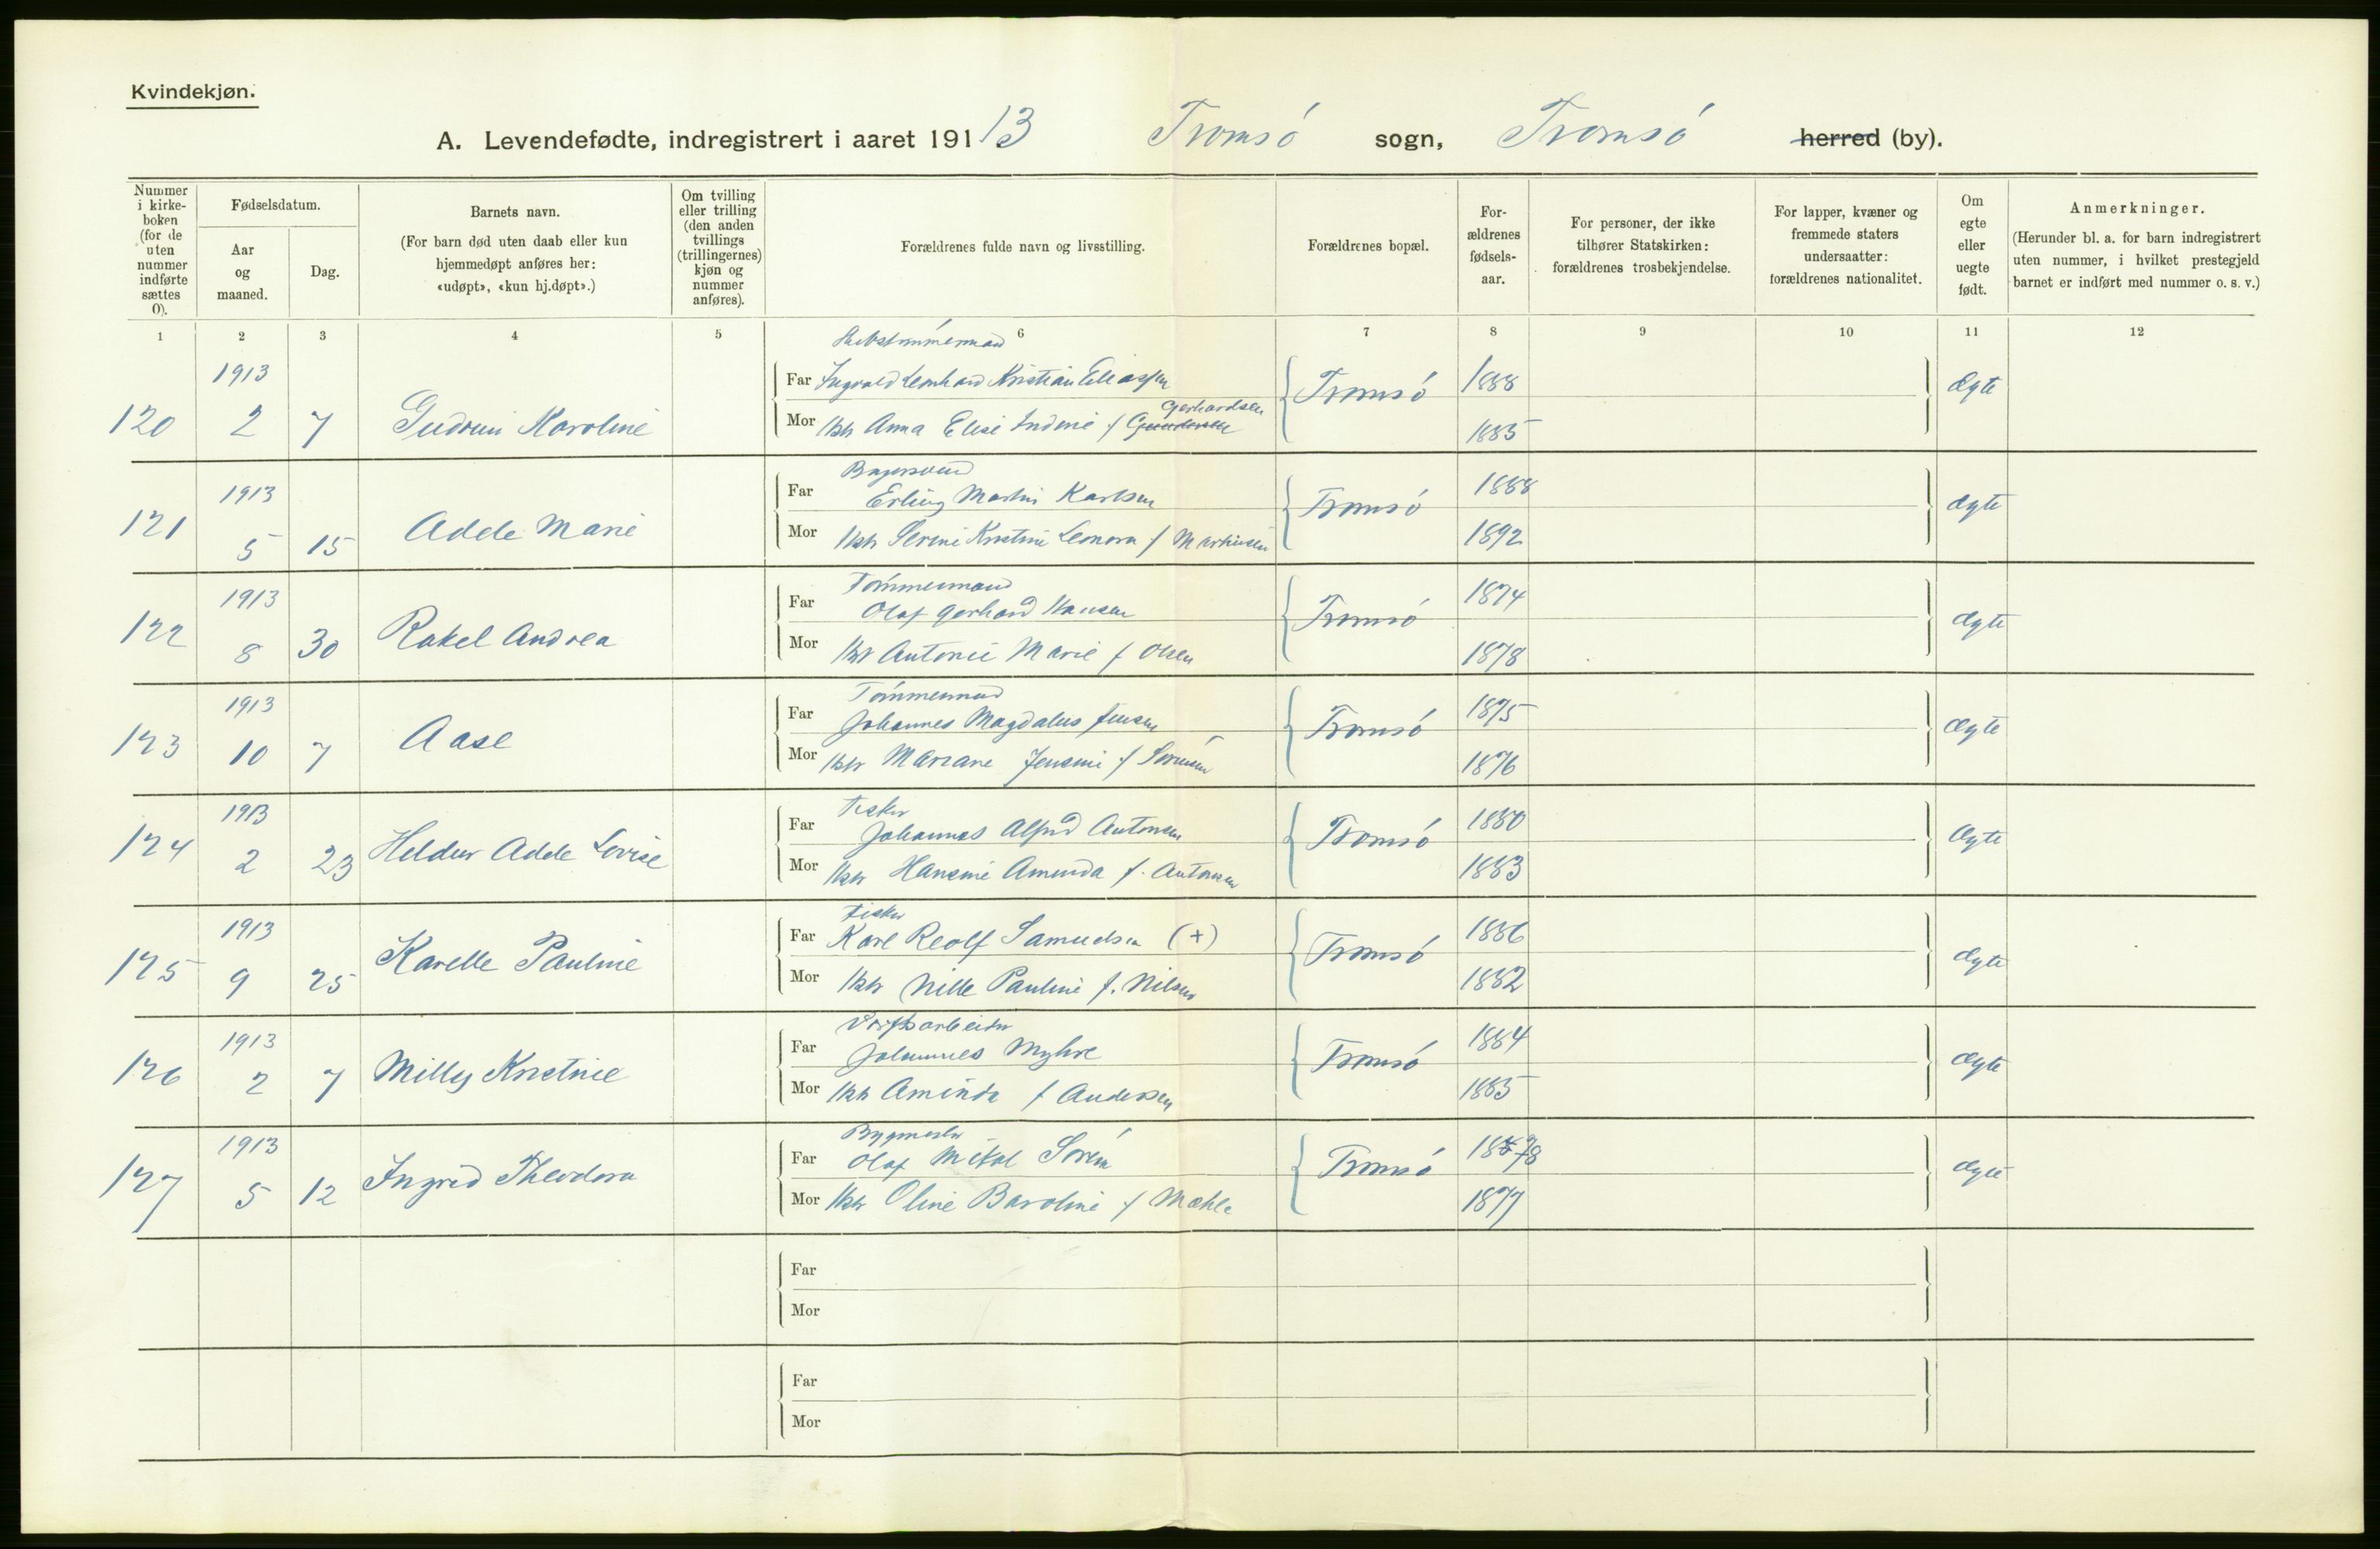 Kvindekjøn.
A. Levendefødte, indregistrert i aaret 191 13 Tromsó sogn, Tromsó herred (by).
Nummer i kirke-boken (for de uten nummer indførte sættes 0).
Fødselsdatum.
Aar og maaned.
Dag.
Barnets navn.
(For barn død uten daab eller kun hjemmedøpt anføres her: «udøpt», «kun hj.døpt».)
Om tvilling eller trilling (den anden tvillings (trillingernes) kjøn og nummer anføres).
Forældrenes fulde navn og livsstilling.
Forældrenes bopæl.
For-ældrenes fødsels-aar.
For personer, der ikke tilhører Statskirken: forældrenes trosbekjendelse.
For lapper, kvæner og fremmede staters undersaatter: forældrenes nationalitet.
Om egte eller uegte født.
Anmerkninger.
(Herunder bl. a. for barn indregistrert uten nummer, i hvilket prestegjeld barnet er indført med nummer o. s. v.)
1 2 3 4 5 6 7 8 9 10 11 12
Skibstømmermand
1913
Far Ingvald Leonhard Kristian Eliassen Tromsó 1888 ægte
120 2 7 Gudrun Karoline
Gerhardsen
Mor Hstr Anna Elise Indine f 1885
Bagersvend
1913
Far Erling Martin Karlsen Tromsó 1888 ægte
121 5 15 Adele Marie
Mor Hstr Serine Kristine Leonora f Martinsen 1892
Tømmermand
1913
Far Olaf Gerhard Hansen Tromsó 1874 ægte
122 8 30 Rakel Andrea
Mor Hstr Antonie Marie f Olsen 1878
Tømmermand
1913
Far Johannes Magdalus Jensen Tromsó 1875 ægte
123 10 7 Aase
Mor Hstr Mariane Jensine f Sørensen 1876
Fisker
1913
Far Johannes Alfred Antonsen Tromsó 1880 ægte
124 2 23 Heldur Adele Lovise
Mor Hstr Hansine Amunda f. Antonsen 1883
Fisker
1913
Far Karl Reolf Samuelsen (+) Tromsó 1886 ægte
125 9 25 Karelle Pauline
Mor Hstr Nille Pauline f. Nilsen 1882
1913
Far Johannes Myhre Tromsó 1884 ægte
126 2 7 Milly Kristine
Mor Hstr Aminda f Andersen 1885
Bygmester
1913
Far Olaf Mikal Tromsó 1878 ægte
127 5 12 Ingrid Theodora
Mor Hstr Oline Baroline f Mæhle 1877
Far
Mor
Far
Mor